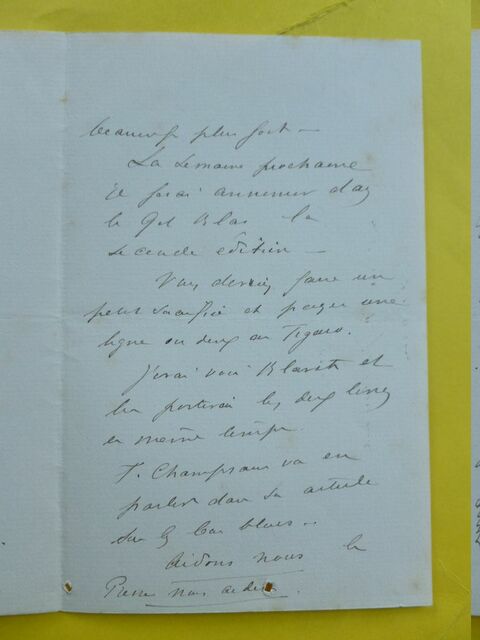 beaucoup plus fort —
La semaine prochaine
je ferai annoncer dans
le Gil Blas la
seconde edition —
Vous devriez faire un
petit sacrifice et payer une
ligne ou deux au Figaro.
J'irai voir et
lui porterai les deux livres
en meme temps.
F. Champsaur va en
parler dans son article
sur les bas bleus —
Aidons nous la
Presse nous aidera.